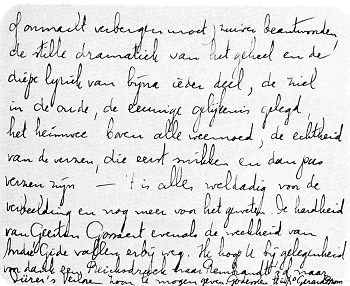 onmacht verbergen moet, zuiver beantwoorden,
de stille dramatiek van het geheel en de
diepe lyriek van bijna ieder deel, de ziel
in de oude, de eeuwige gelijkenis gelegd,
het heimwee boven alle weemoed, de echtheid
van de verzen, die eerst snikken en dan pas
verzen zijn — 't is alles weldadig voor de
verbeelding en nog meer voor het geweten. De hardheid
van Geerten Gossaert evenals de weekheid van
André Gide vallen erbij weg. Ik hoop U bij gelegenheid
van dank een naar Rembrandt of naar
Dürer's Verloren Zoon te mogen geven. Gerard